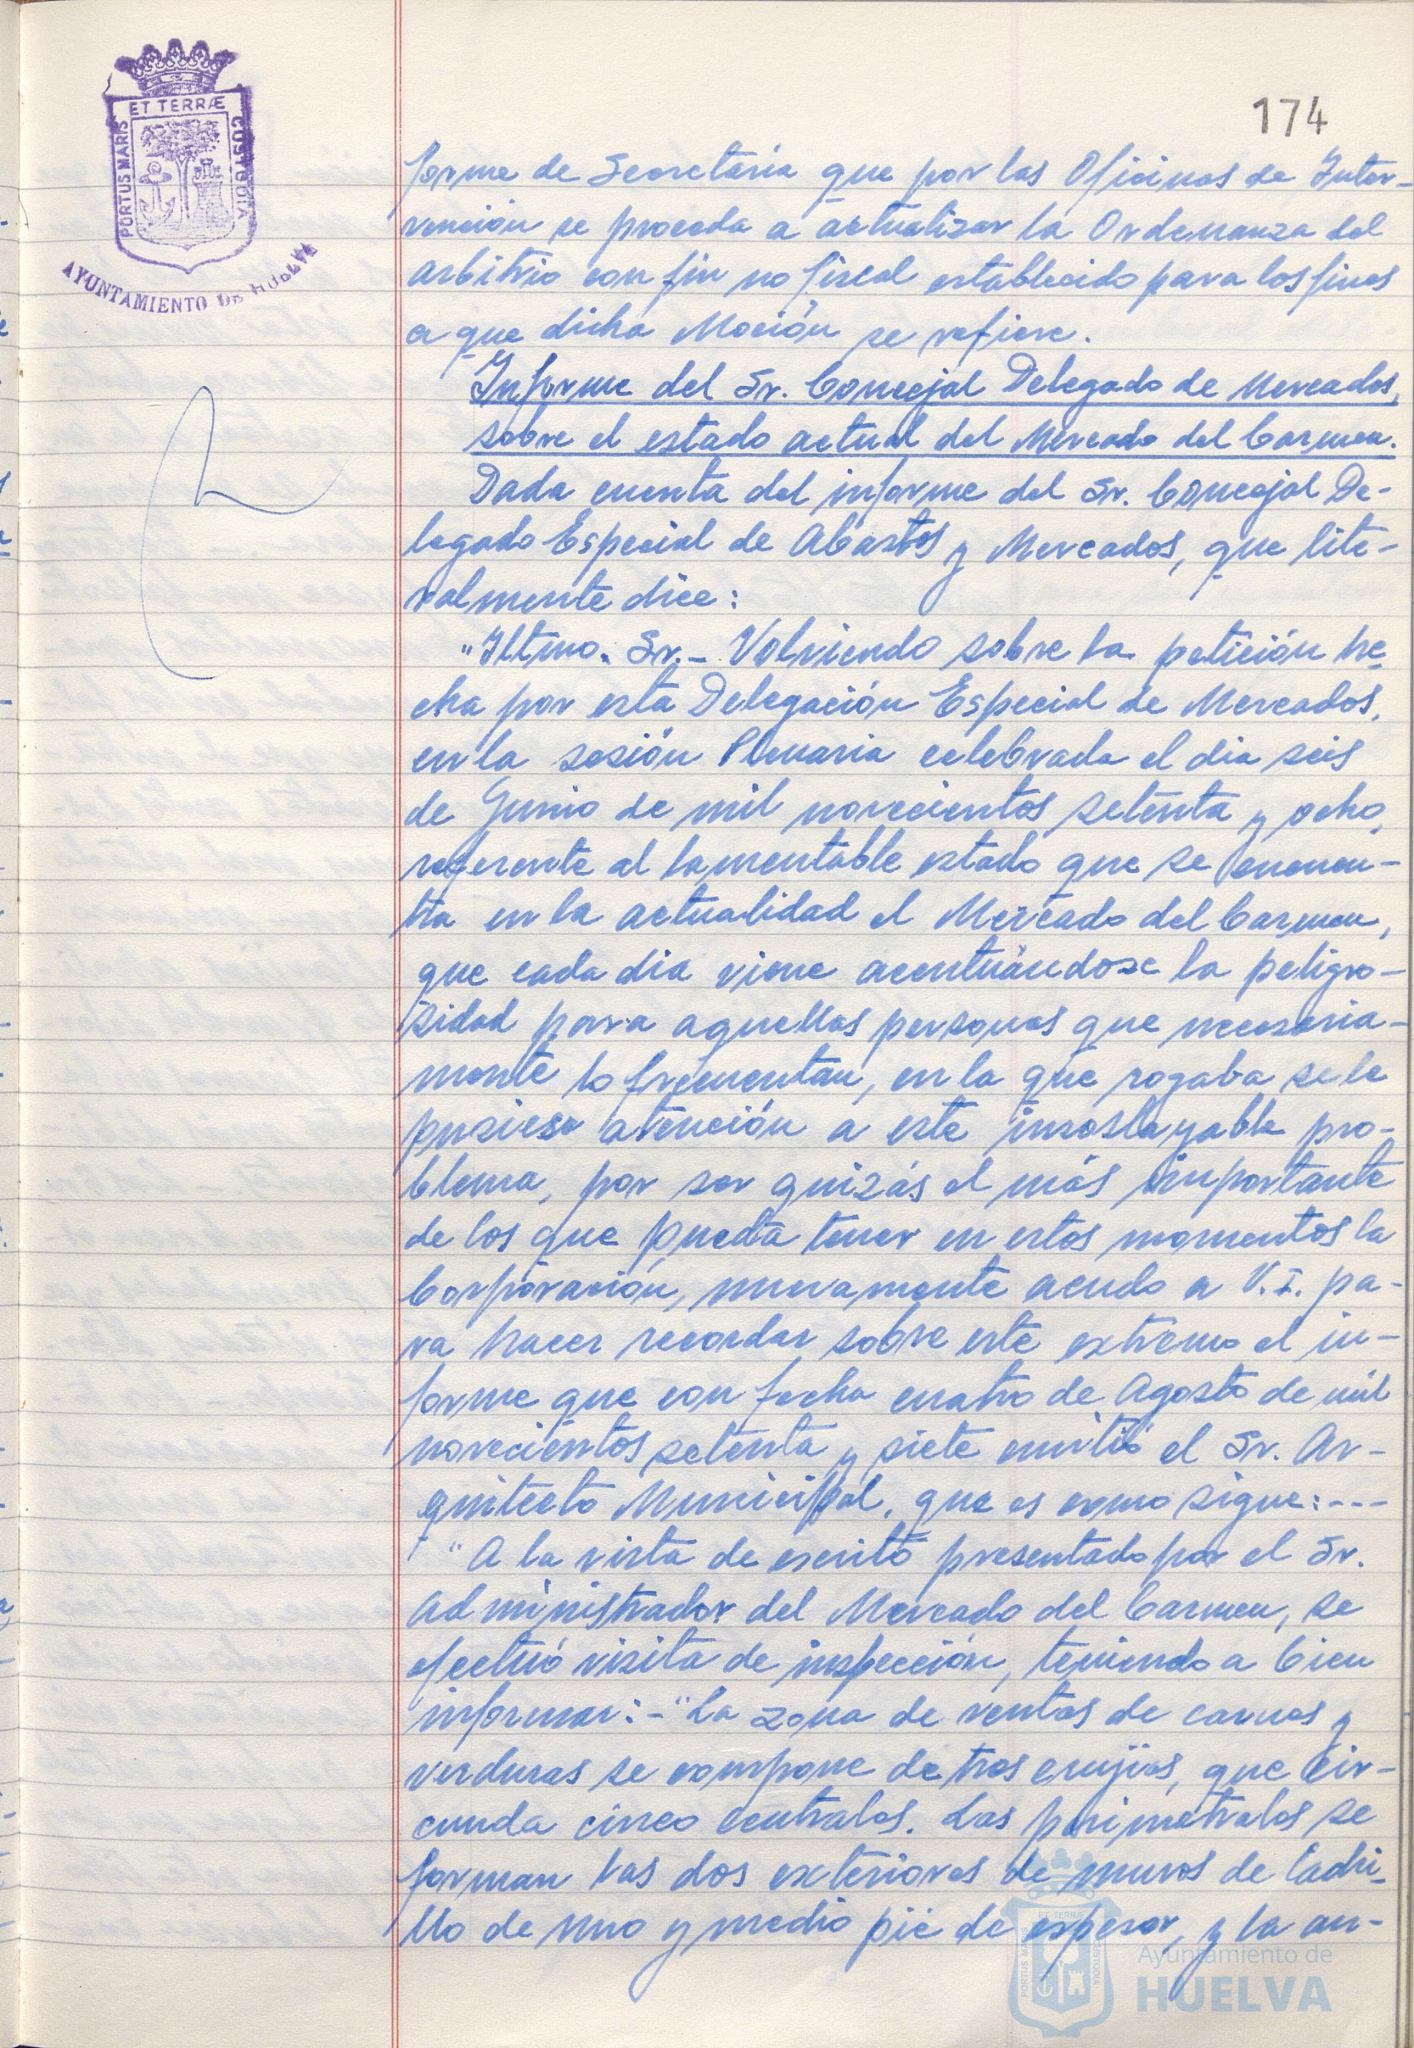 ET TERRÆ
PORTUS MARIS
CUSTODIA
AYUNTAMIENTO DE HUELVA
174
forme de Secretaría que por las Oficinas de Inter-
vención se proceda a actualizar la Ordenanza del
arbitrio con fin no fiscal establecido para los fines
a que dicha Moción se refiere.
Informe del Sr. Concejal Delegado de Mercados,
sobre el estado actual del Mercado del Carmen.
Dada cuenta del informe del Sr. Concejal De-
legado Especial de Abastos y Mercados, que lite-
ralmente dice:
"Iltmo. Sr.- Volviendo sobre la petición he-
cha por esta Delegación Especial de Mercados,
en la sesión Plenaria celebrada el dia seis
de Junio de mil novecientos setenta y ocho,
referente al lamentable estado que se encuen-
tra en la actualidad el Mercado del Carmen,
que cada dia viene acentuándose la peligro-
sidad para aquellas personas que necesaria-
mente lo frecuentan, en la que rogaba se le
pusiese atención a este insoslayable pro-
blema, por ser quizás el más importante
de los que pueda tener en estos momentos la
Corporación, nuevamente acudo a V.I. pa-
ra hacer recordar sobre este extremo el in-
forme que con fecha cuatro de Agosto de mil
novecientos setenta y siete emitió el Sr. Ar-
quitecto Municipal, que es como sigue:---
"A la vista de escrito presentado por el Sr.
Administrador del Mercado del Carmen, se
efectuó visita de inspección, teniendo a bien
informar:-"La zona de ventas de carnes y
verduras se compone de tres crujias, que cir-
cunda cinco centrales. Las perimetrales se
forman las dos exteriores de muros de ladri-
llo de uno y medio pié de espesor, y la an-
ET TERRÆ
PORTUS MARIS
CUSTODIA
Ayuntamiento de
HUELVA